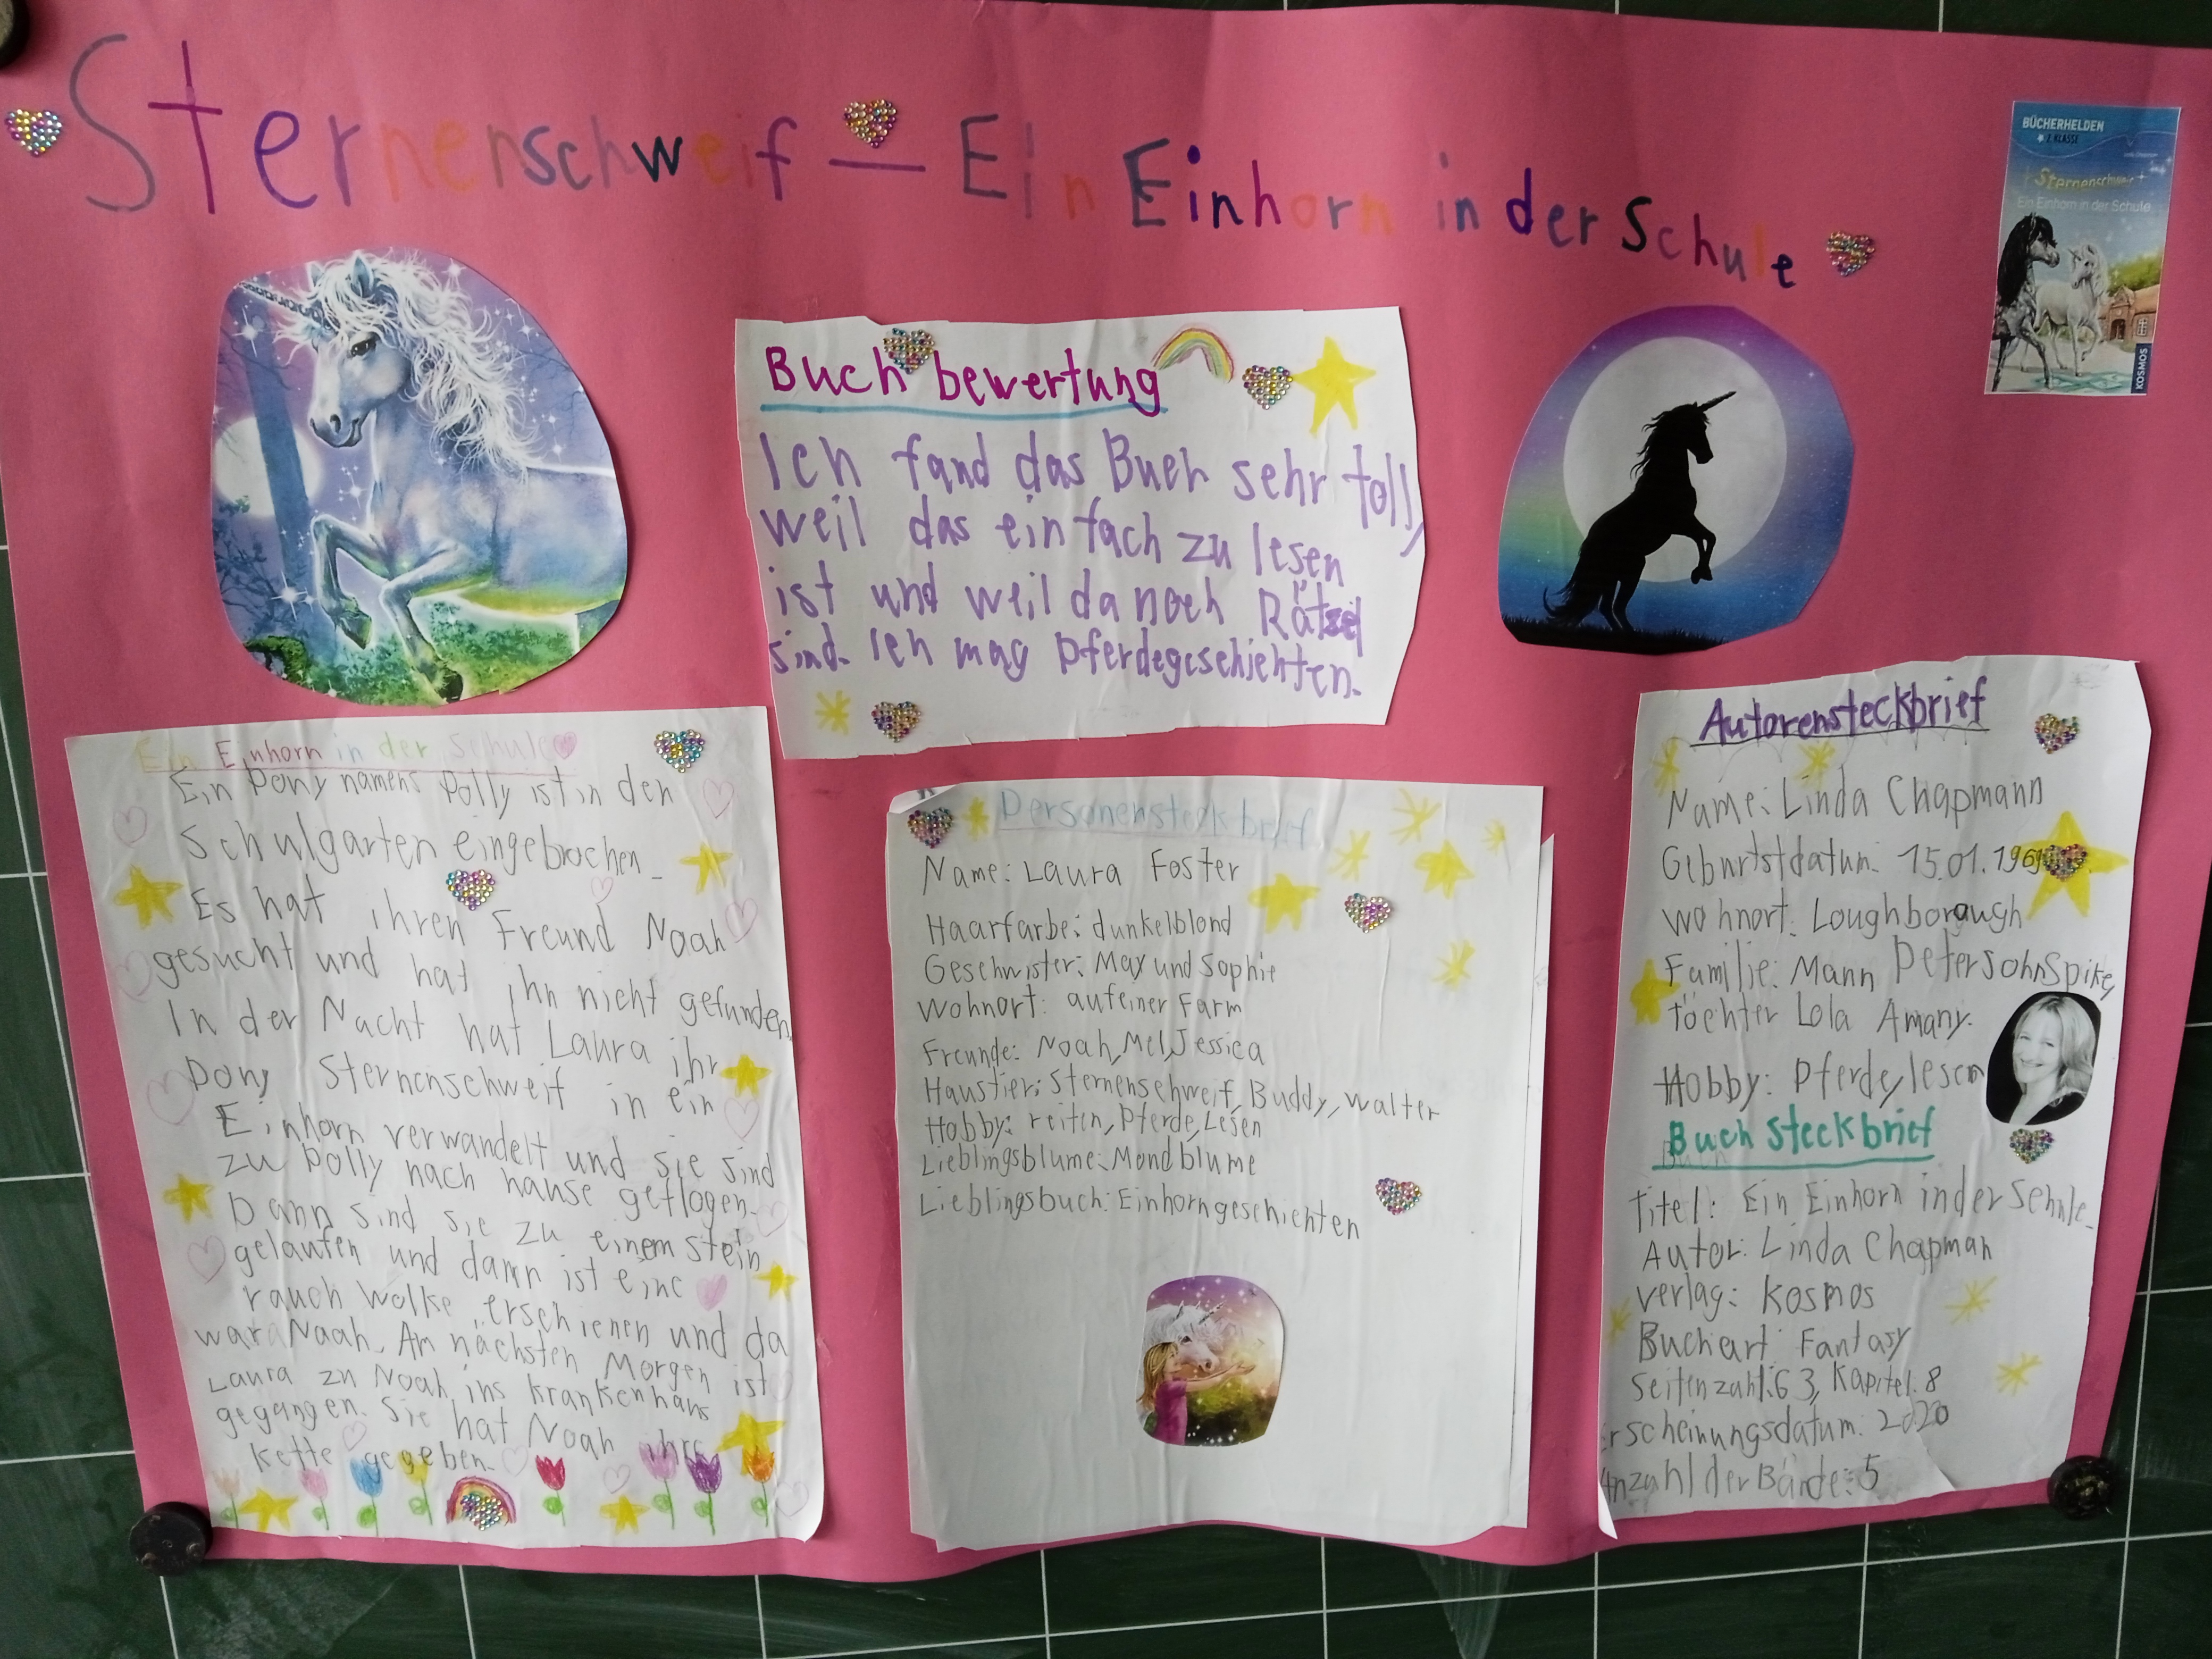 Sternenschweif — Ein Einhorn in der Schule
BÜCHERHELDEN
2. KLASSE
Sternenschweif
Ein Einhorn in der Schule
KOSMOS
Buch bewertung
Ich fand das Buch sehr toll,
weil das einfach zu lesen
ist und weil da noch Rätsel
sind. Ich mag Pferdegeschichten.
Ein Einhorn in der Schule
Ein Pony namens Polly ist in den
Schulgarten eingebrochen.
Es hat ihren Freund Noah
gesucht und hat ihn nicht gefunden.
In der Nacht hat Laura ihr
Pony Sternenschweif in ein
Einhorn verwandelt und sie sind
zu Polly nach hause geflogen.
Dann sind sie zu einem stein
gelaufen und dann ist eine
rauch Wolke erschienen und da
war Noah. Am nächsten Morgen ist
Laura zu Noah ins krankenhaus
gegangen. Sie hat Noah ihre
Kette gegeben.
Personensteckbrief
Name: Laura Foster
Haarfarbe: dunkelblond
Geschwister: Max und Sophie
Wohnort: auf einer Farm
Freunde: Noah, Mel, Jessica
Haustier: Sternenschweif, Buddy, Walter
Hobby: reiten, Pferde, Lesen
Lieblingsblume: Mondblume
Lieblingsbuch: Einhorngeschichten
Autorensteckbrief
Name: Linda Chapmann
Geburtstdatum: 15.01.1969
Wohnort: Loughboraugh
Familie: Mann Peter sohn Spike,
töchter Lola Amany.
Hobby: Pferde, lesen
Buch steckbrief
Titel: Ein Einhorn in der Schule.
Autor: Linda Chapman
verlag: Kosmos
Buchart: Fantasy
Seitenzahl: 63, Kapitel: 8
Erscheinungsdatum: 2020
Anzahl der Bände: 5